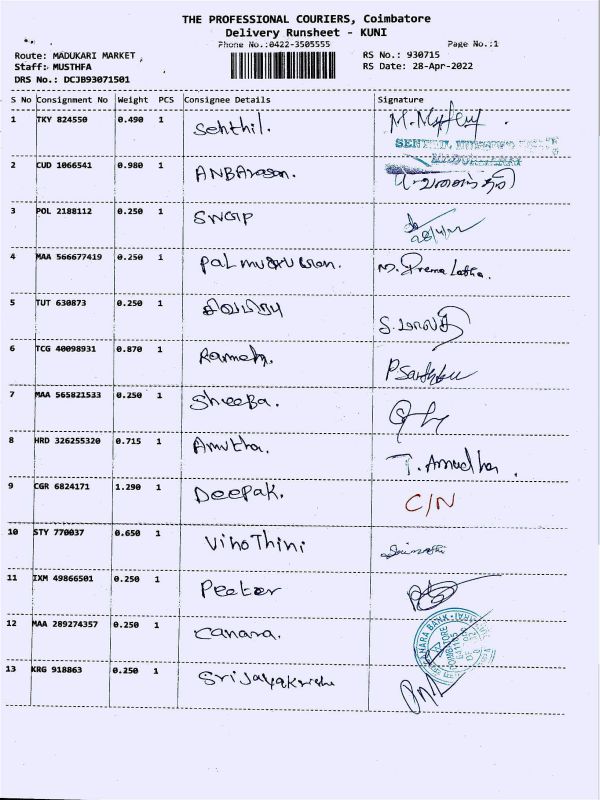 THE PROFESSIONAL COURIERS, Coimbatore
Delivery Runsheet - KUNI
Phone No.:0422-3505555 Page No.:1
Route: MADUKARI MARKET ,
Staff: MUSTHFA
DRS No.: DCJB93071501
RS No.: 930715
RS Date: 28-Apr-2022
S No Consignment No Weight PCS Consignee Details Signature
1 TKY 824550 0.490 1 Senthil.
2 CUD 1066541 0.980 1 ANBArasan.
3 POL 2188112 0.250 1 SWAP 28/4/22
4 MAA 566677419 0.250 1 M. Prema Latha.
5 TUT 630873 0.250 1 சிவபிரபு S. மாலதி
6 TCG 40098931 0.870 1 Ramesh.
7 MAA 565821533 0.250 1 Sheeba.
8 HRD 326255320 0.715 1 Amutha. T. Amudha.
9 CGR 6824171 1.290 1 Deepak. C/N
10 STY 770037 0.650 1 VinoThini
11 IXM 49866501 0.250 1 Peeter
12 MAA 289274357 0.250 1 Canara.
13 KRG 918863 0.250 1 Srijayakrishna